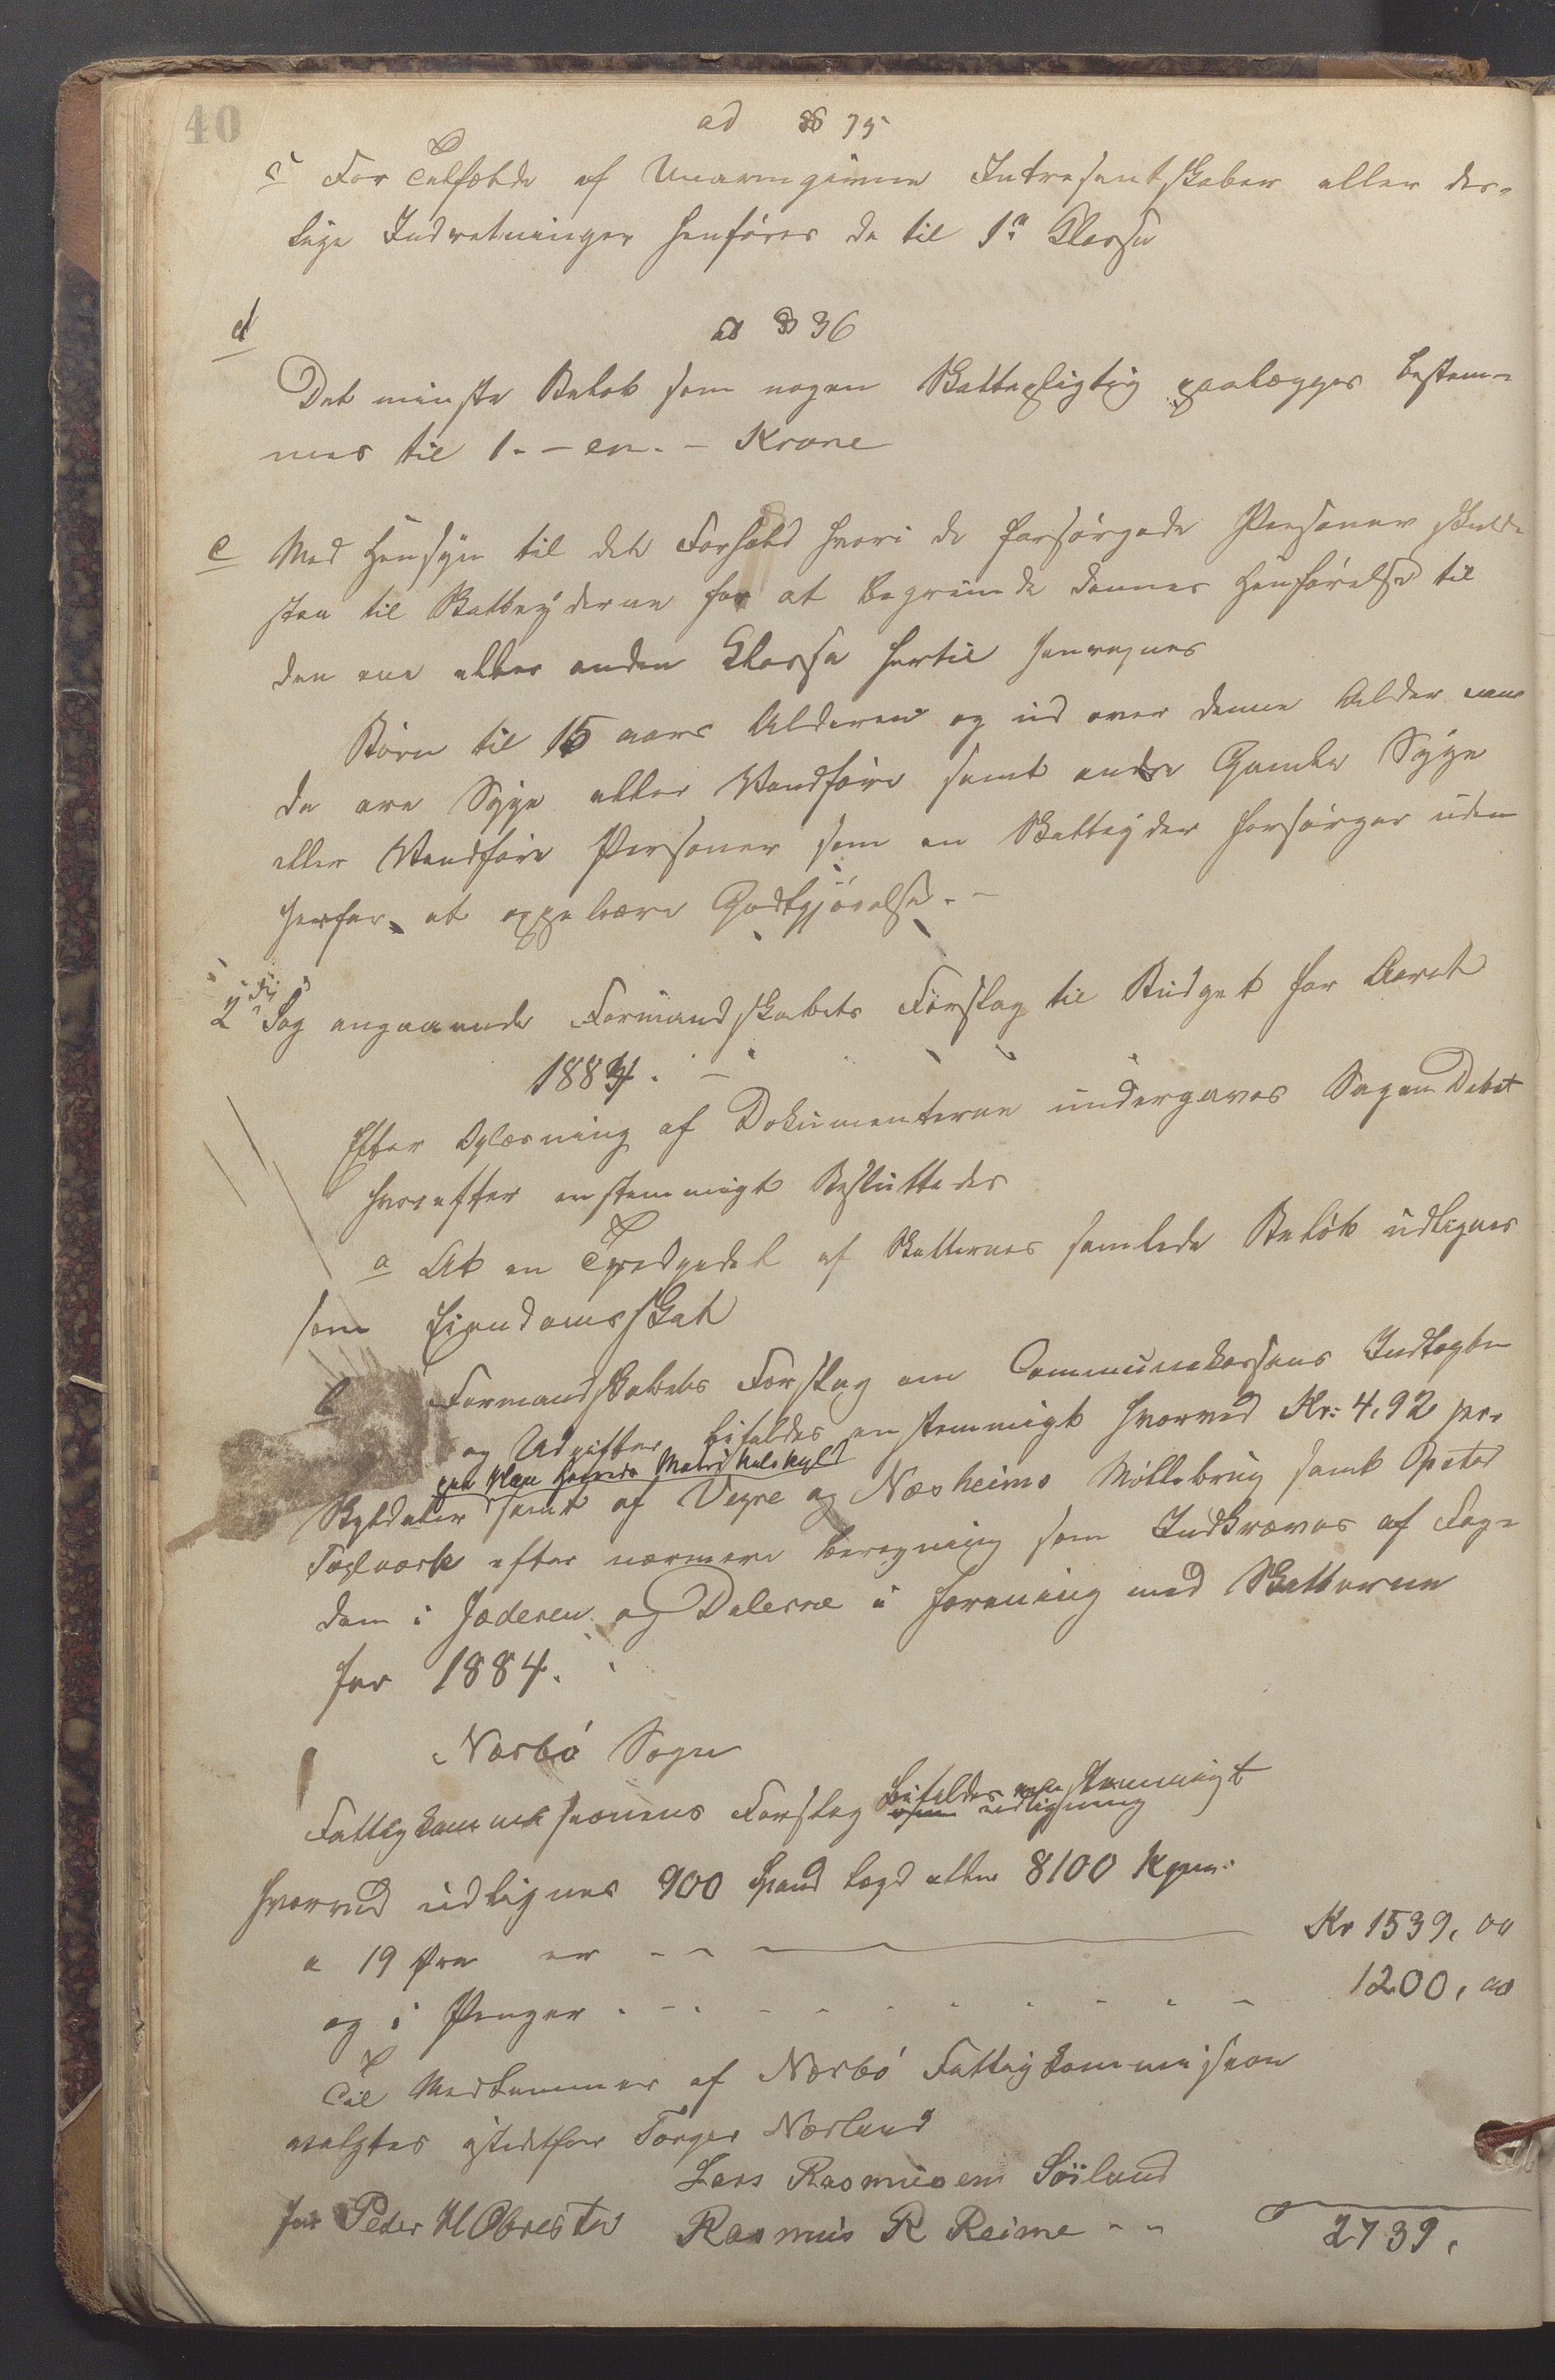 40
ad § 75
c For Tilfælde af Unavngivne Intresentskaber eller des-
lige Indretninger henføres de til 1ª Klasse
d
ad § 36
Det minste Beløb som nogen Skattepligtig paalægges bestem-
mes til 1. - en. - Krone
e Med Hensyn til det Forhold hvori de forsørgede Personer skulde
staa til Skatteyderne for at begrunde dennes Henførelse til
den ene eller anden Klasse hertil henregnes
Børn til 15 aars Alderen og ud over denne Alder naar
de ere Syge eller Vandføre samt andre Gamle Syge
eller Vandføre Personer som en Skatteyder forsørger uden
herfor at oppebære Godtgjørelse. -
2 Sag angaaende Formandskabets Forslag til Budget for Aaret
1884. -
Efter Oplæsning af Dokumenterne undergaves Sagen Debat
hvorefter enstemmigt Besluttedes
a At en Trediedel af Skatternes samlede Beløb udlignes
som Eiendomsskat
b Formandskabets Forslag om Communekassens Indtægter
og Udgifter bifaldes enstemmigt hvorved Kr: 4,92 per
Matrikulskyld
Skyldaler samt af Vigre og Næsheims Møllebrug samt Opstad
Teglværk efter nærmere beregning som Indkræves af Fog-
den i Jæderen og Dalerne i forening med Skatterne
for 1884.
Nærbø Sogn
Fattigkommissionens Forslag bifaldes enstemmigt
om udligning
hvorved udlignes 900 Spand lægd eller 8100 Kgrm.
a 19 Øre er - - - Kr 1539, 00
og i Penger . - . - - - - - - - 1200, 00
Til Medlemmer af Nærbø Fattigkommission
valgtes istedetfor Torger Nærland
Lars Rasmusen Söiland
for Peder H Obrestad Rasmus R Reime - -
2739,